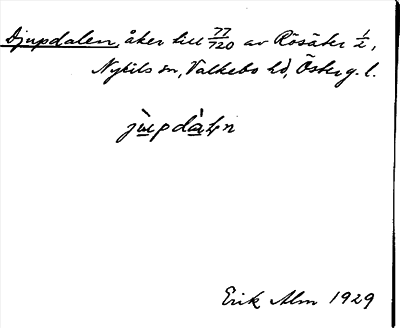 Djupdalen, åker till 77/720 av Rösäter 1/2,
Nykils sn, Valkebo hd, Österg. l.
jùpdàḷn
Erik Alm 1929